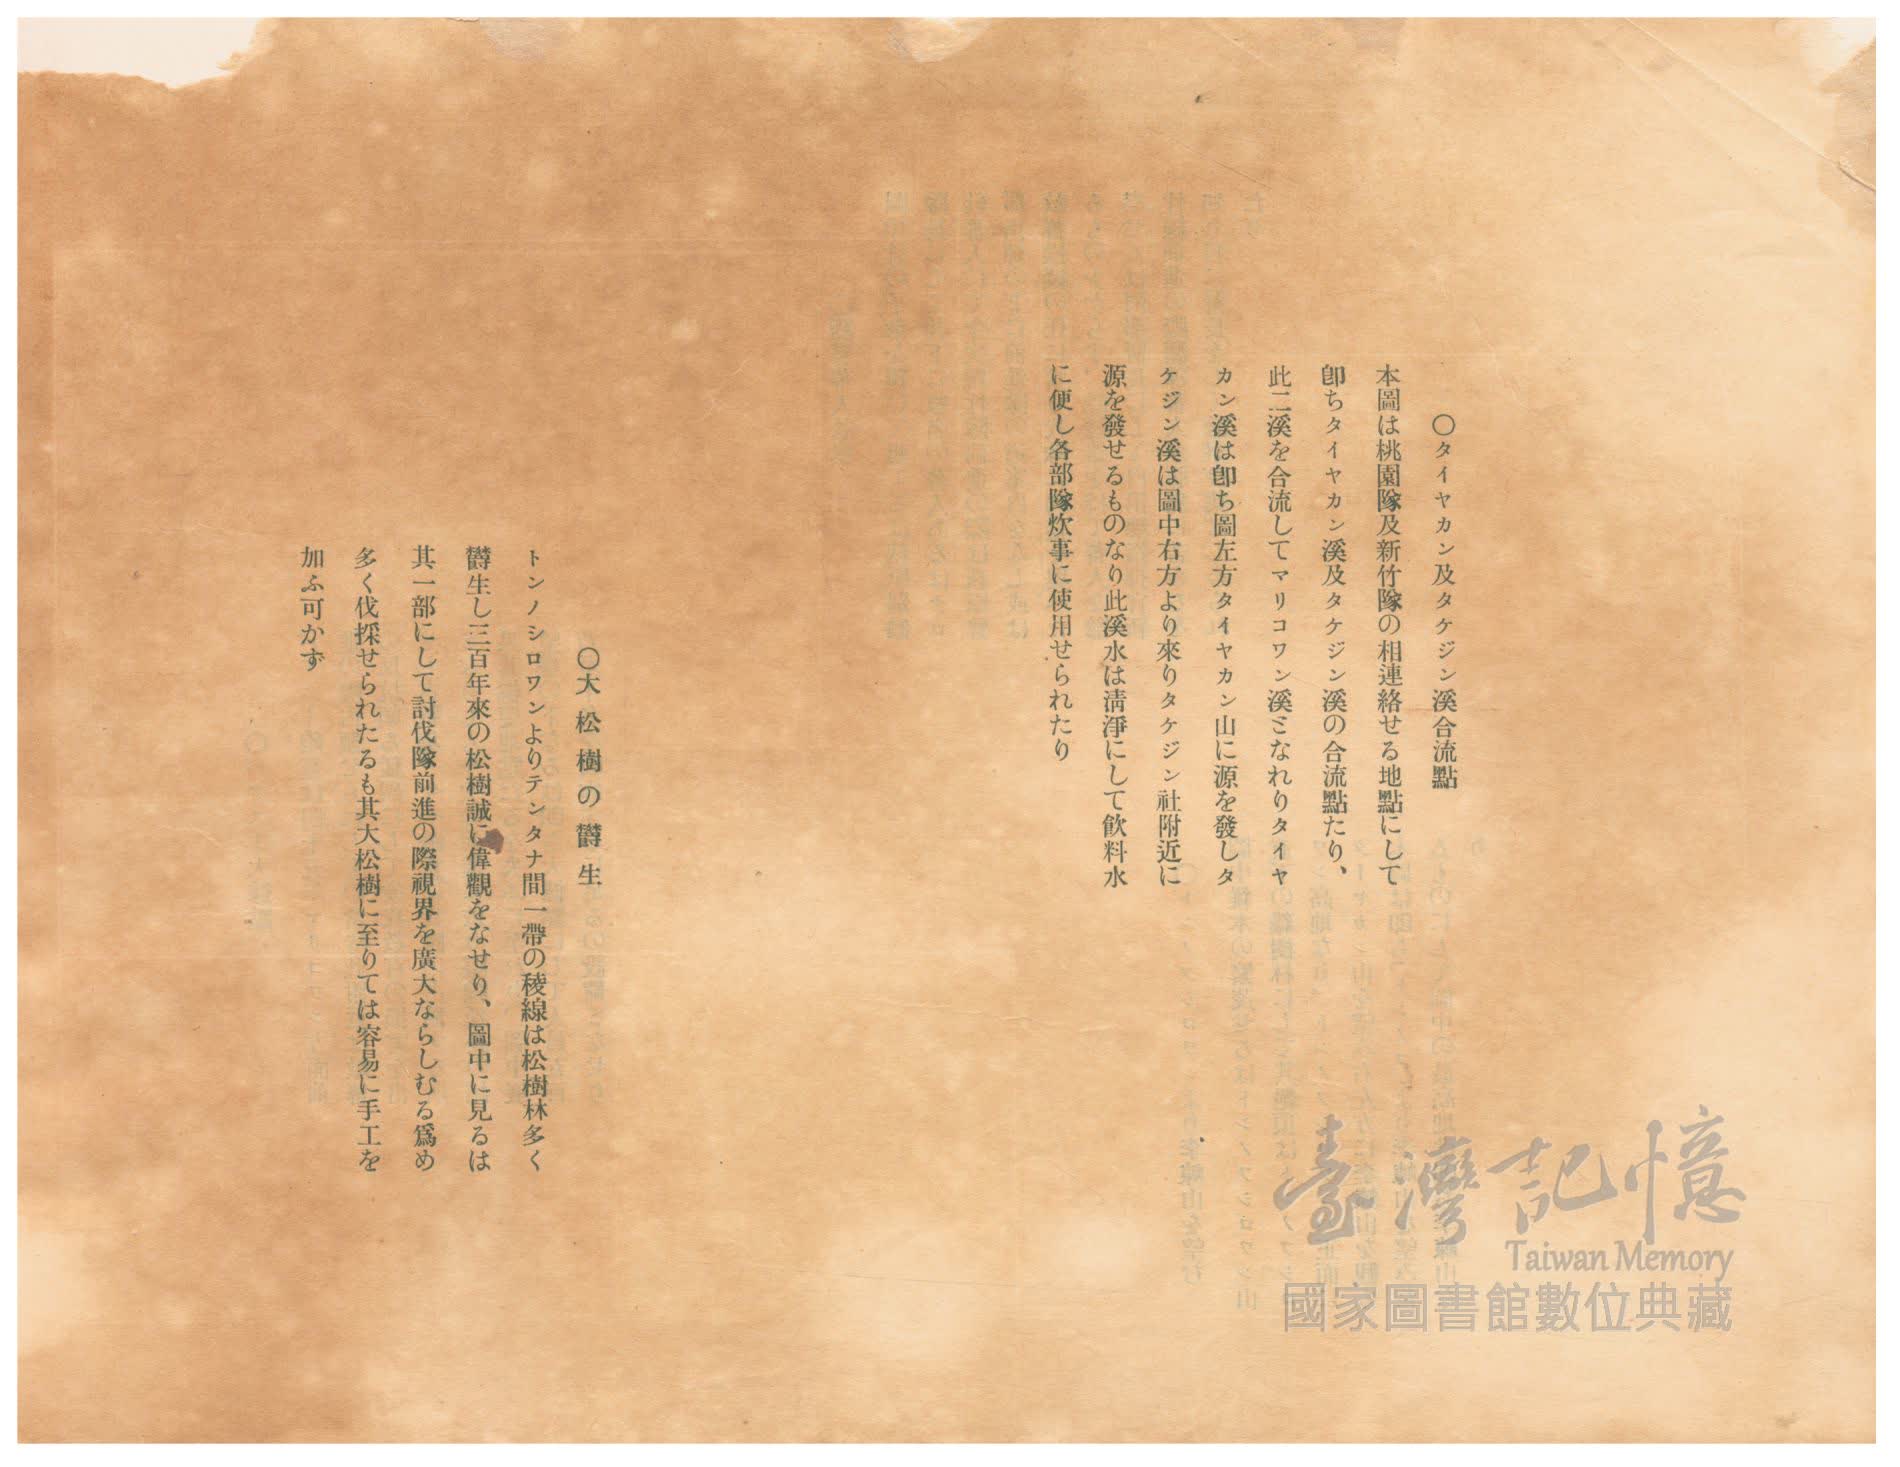 〇タイヤカン及タケジン溪合流點
本圖は桃園隊及新竹隊の相連絡せる地點にして
卽ちタイヤカン溪及タケジン溪の合流點たり、
此二溪を合流してマリコワン溪ミなれりタイヤ
カン溪は卽ち圖左方タイヤカン山に源を發しタ
ケジン溪は圖中右方より來りタケジン社附近に
源を發せるものなり此溪水は淸淨にして飮料水
に便し各部隊炊事に使用せられたり
〇大松樹の欝生
トンノシロワンよりテンタナ間一帶の稜線は松樹林多く
欝生し三百年來の松樹誠に偉觀をなせり、圖中に見るは
其一部にして討伐隊前進の際視界を廣大ならしむる爲め
多く伐採せられたるも其大松樹に至りては容易に手工を
加ふ可かず
臺灣記憶
Taiwan Memory
國家圖書館數位典藏